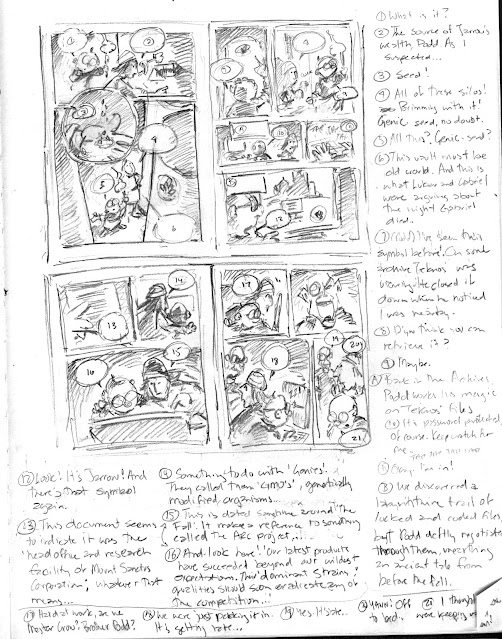 ① What is it?
② The source of Jarrow's
wealth Podd. As I
suspected...
③ Seed!
④ All of these silos!
Brimming with it!
Genie seed, no doubt.
⑤ All this? Genie-seed?
⑥ This vault must be
old world. And this is
what Lukas and Gabriel
were arguing about
the night Gabriel
died.
⑦ I've seen this
symbol before. On some
archive Teknos was
viewing. He closed it
down when he noticed
I was nearby.
⑧ D'you think you can
retrieve it?
⑨ Maybe.
Back in the Archives
Podd works his magic
on Teknos' files
⑩ It's password protected
of course. Keep watch for
me
⑪ Okay I'm in!
We discovered a
labyrinthine trail of
locked and coded files,
but Podd deftly negotiated
through them, unearthing
an ancient tale from
before the fall.
⑫ Look! It's Jarrow! And
there's that symbol
again.
⑬ This document seems
to indicate it was the
head office and research
facility of Mount Sanctus
Corporation; whatever that
means...
⑭ Something to do with 'Genies'.
They called them 'GMO's', genetically
modified organisms...
⑮ This is dated sometime around 'The
Fall'. It makes a reference to something
called The ARC project...
⑯ And look here! 'Our latest products
have succeeded beyond our wildest
expectation. Their dominant strains'
qualities should soon eradicate any of
the competition...
⑰ Hard at work, are we
Proctor Crow? Brother Podd?
⑱ We were just packing it in.
It's getting late...
⑲ Yes. It's late...
⑳ Yawn! Off
to bed,
㉑ I thought
were keeping
13
14
15
16
17
18
19
20
21